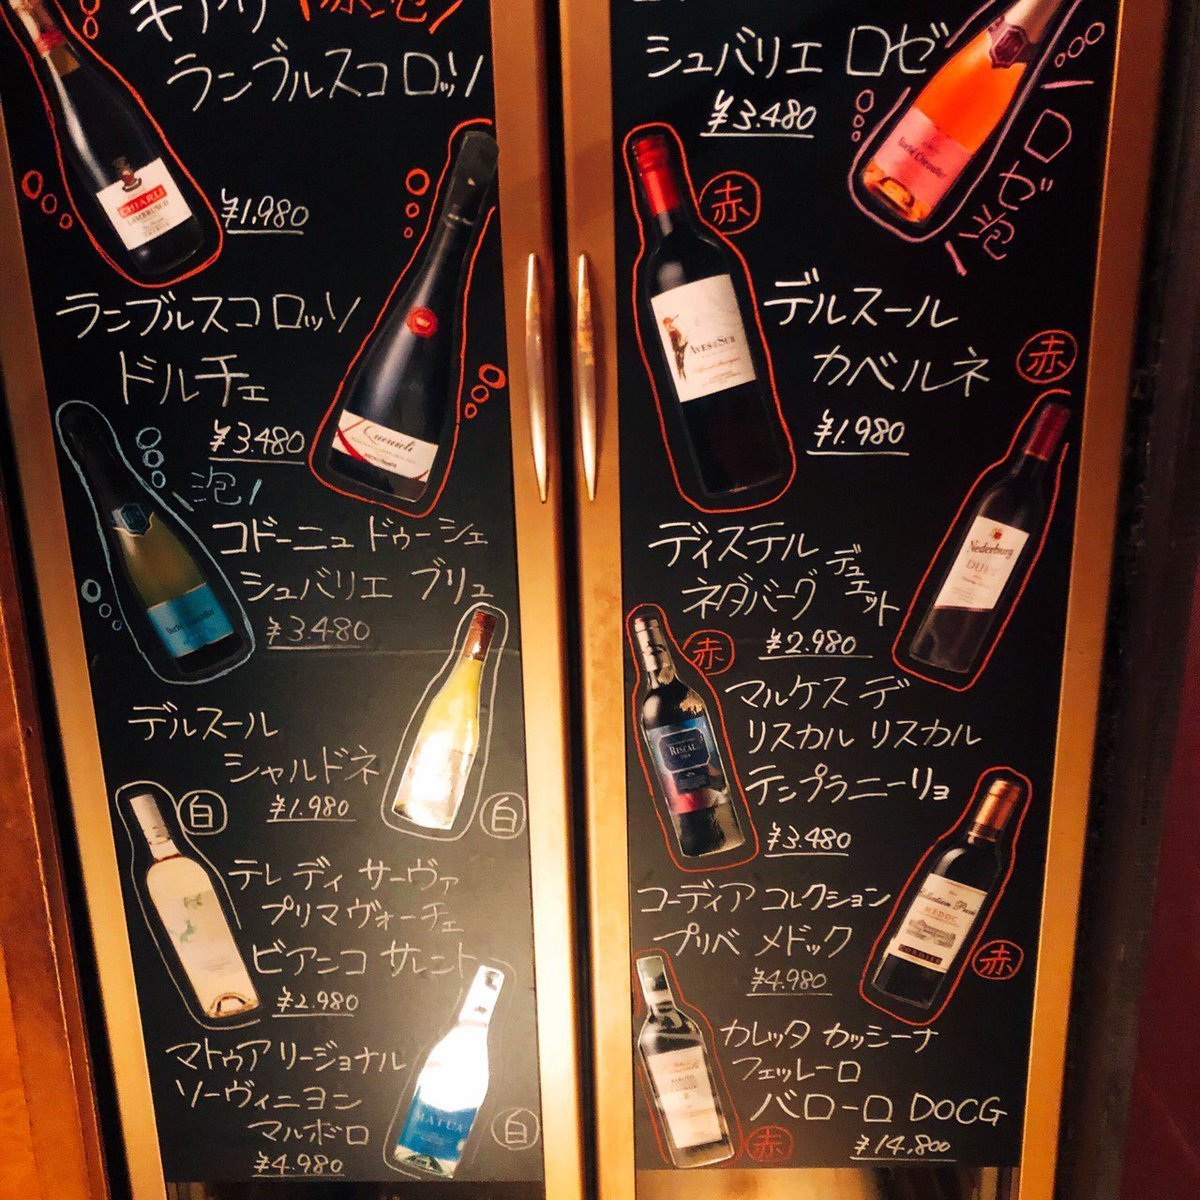 キアリ \赤泡/
ランブルスコ ロッソ
CHIARLI
LAMBRUSCO
¥1.980
ランブルスコ ロッソ
ドルチェ
¥3.480
泡!
コドーニュ ドゥーシェ
シュバリエ ブリュ
¥3.480
デルスール
シャルドネ
¥1.980
白
白
テレ ディ サーヴァ
プリマヴォーチェ
ビアンコ サレント
¥2.980
マトゥア リージョナル
ソーヴィニヨン
マルボロ
¥4.980
MATUA
白
シュバリエ ロゼ
¥3.480
泡ロゼ
赤
AVES DEL SUR
デルスール
カベルネ
¥1.980
赤
ディステル デュエット
ネダバーグ
¥2.980
Nederburg
DUET
赤
マルケス デ
リスカル リスカル
テンプラニーリョ
¥3.480
RISCAL
コーディア コレクション
プリベ メドック
¥4.980
MEDOC
CORDIER
赤
カレッタ カッシーナ
フェッレーロ
バローロ DOCG
¥14,800
赤